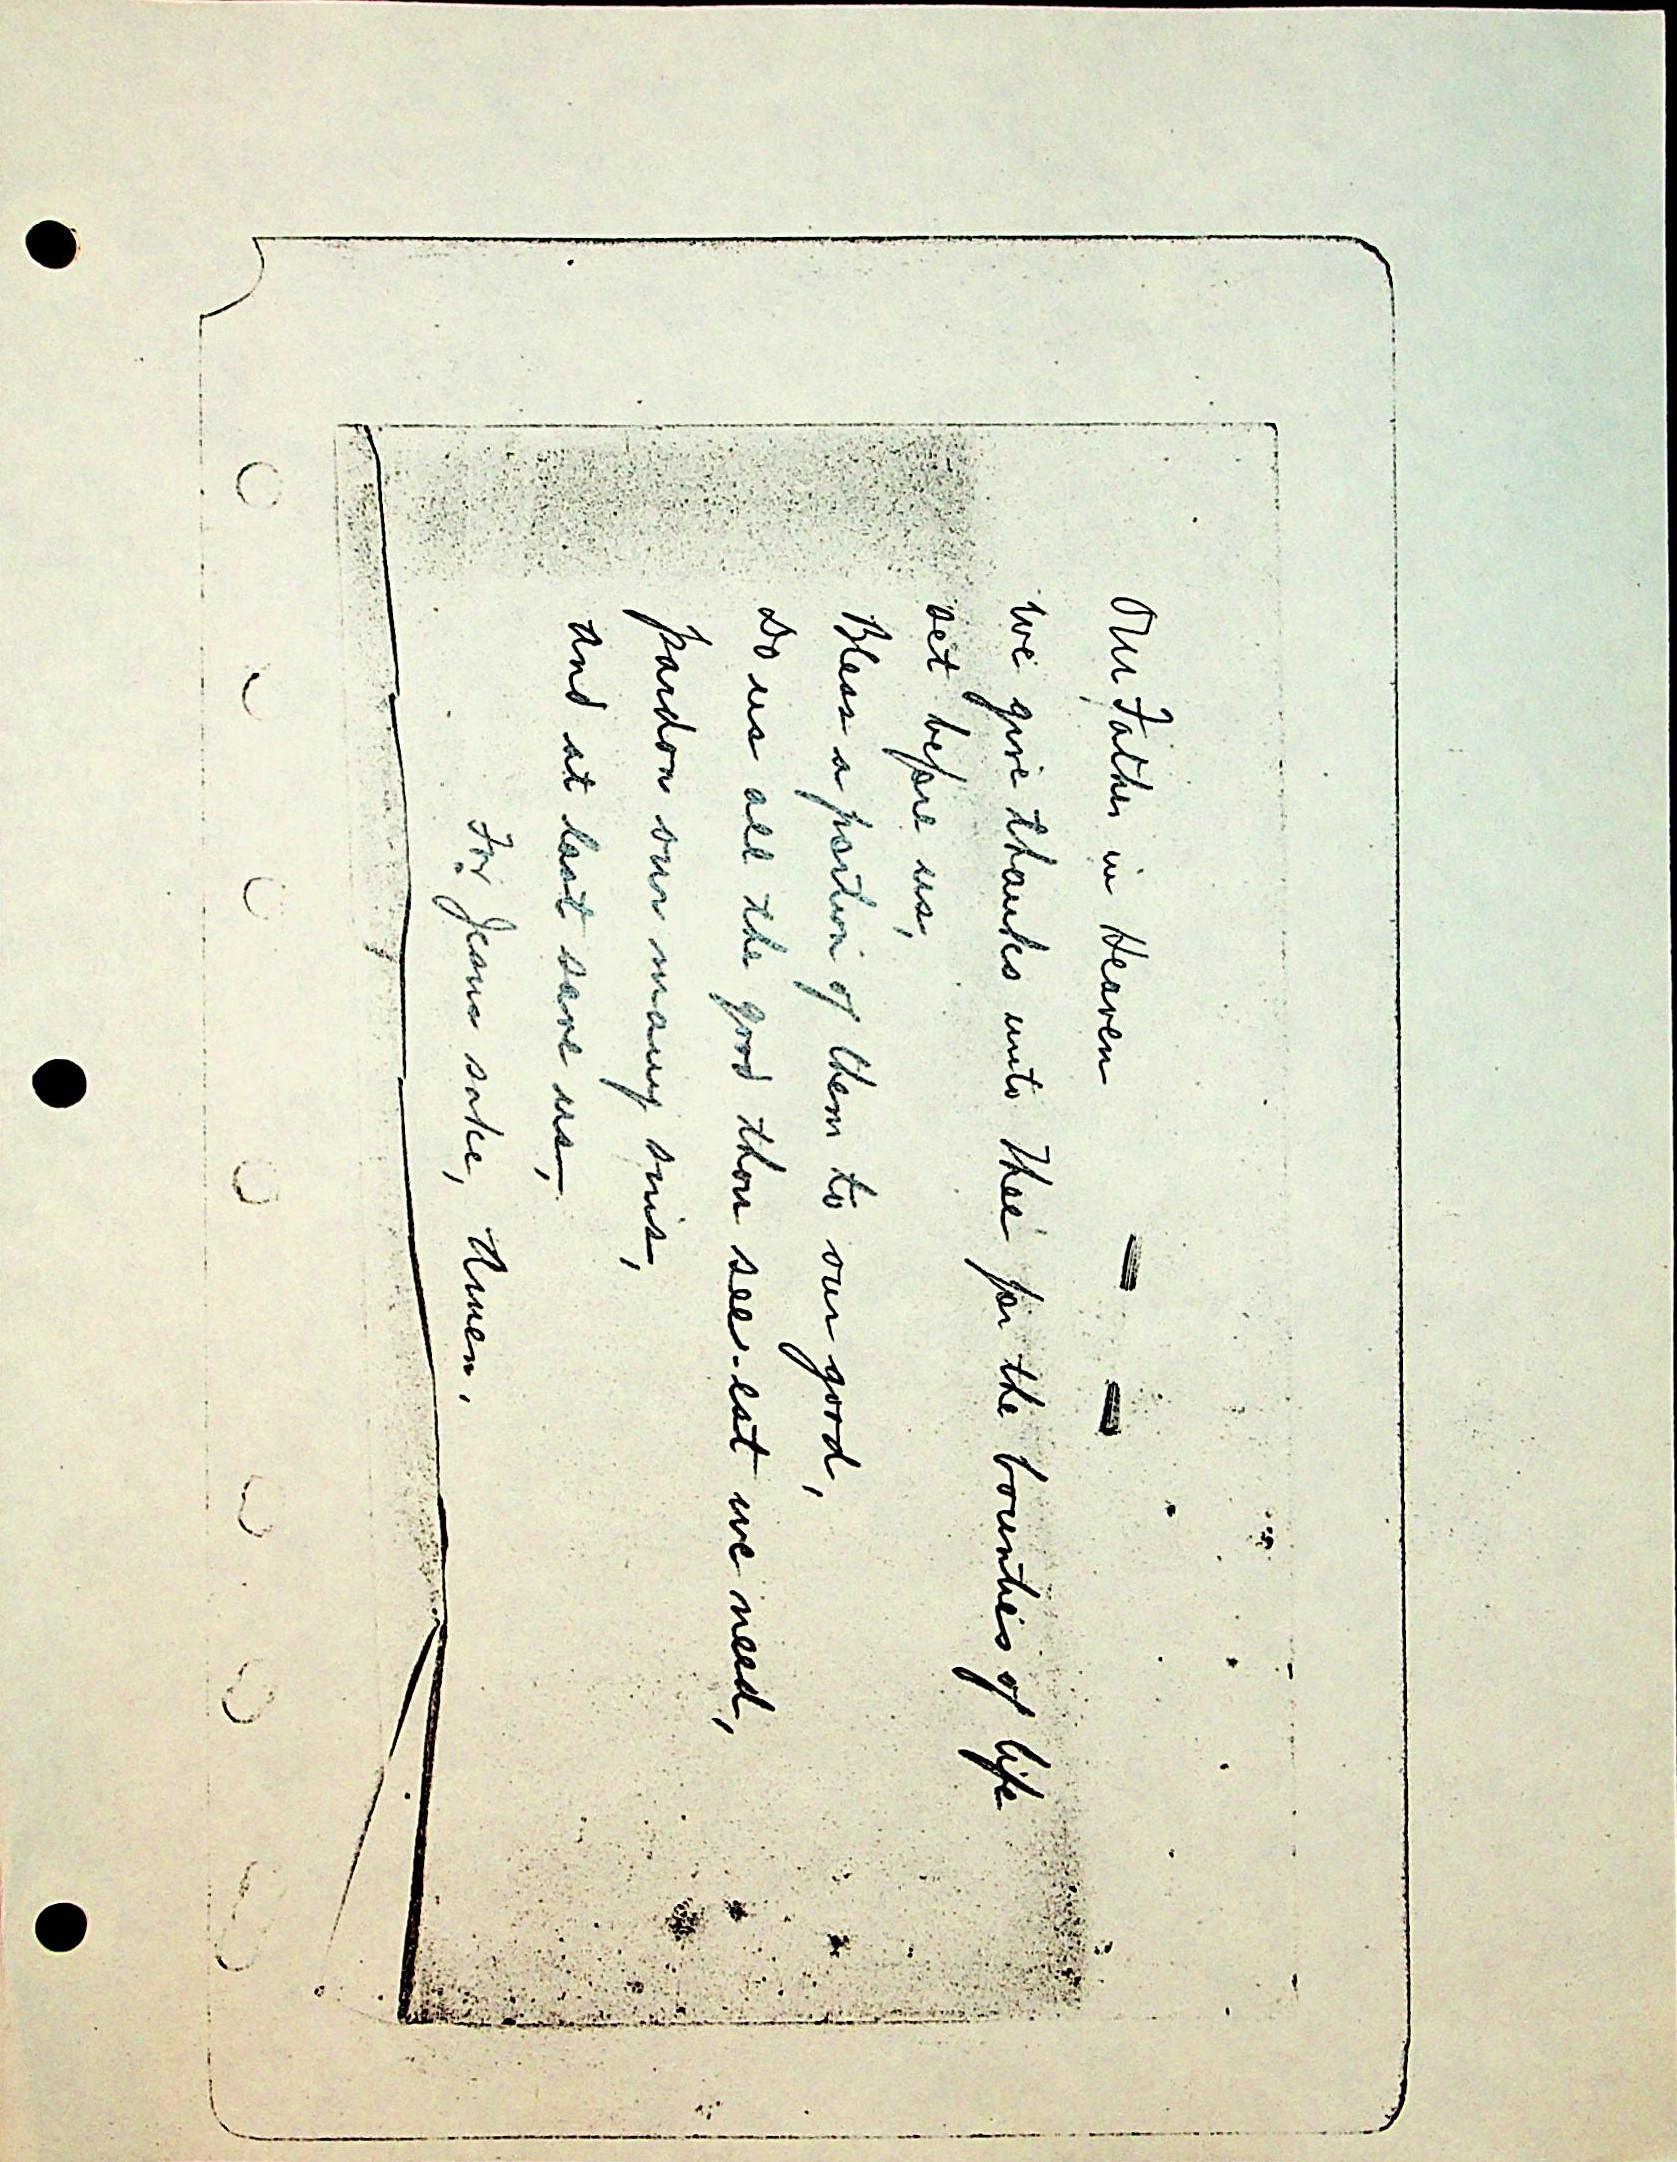 Our Father in Heaven
We give thanks unto Thee for the bounties of life
set before us,
Bless a portion of them to our good,
Do us all the good thou see-est we need,
Pardon our many sins,
And at last save us,
For Jesus sake, Amen.